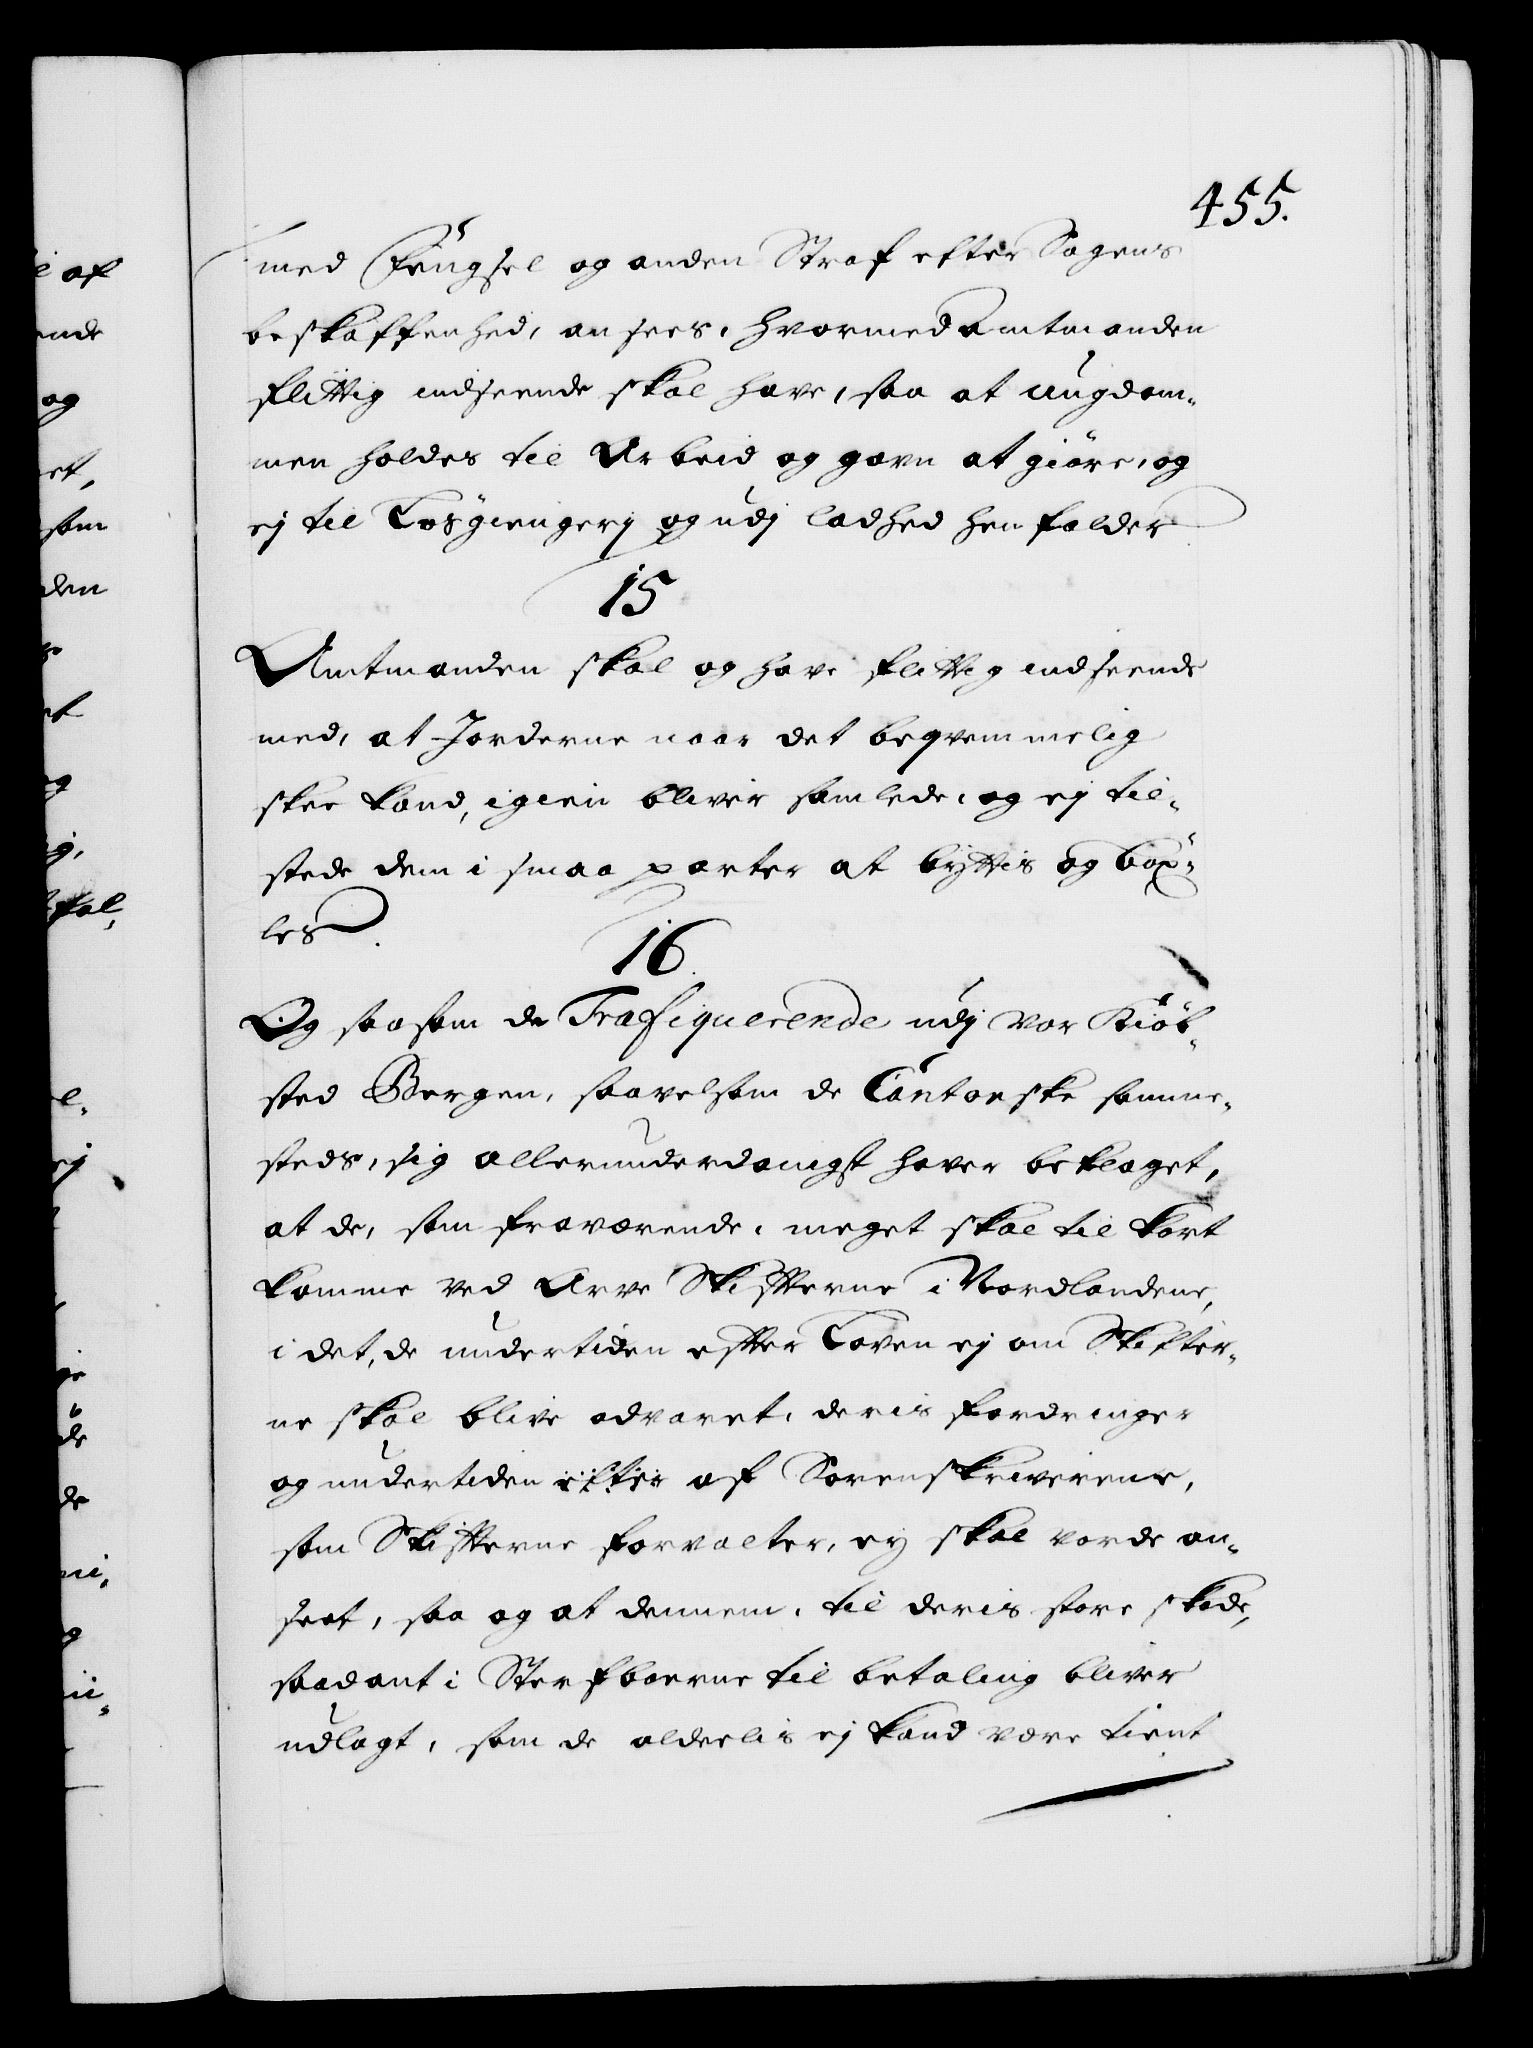 455.
med Fengsel og anden Straf efter Sagens
beskaffenhed, ansees, hvormed Amtmanden
flittig indseende skal have, saa at ungdom-
men holdes til Arbeid og gavn at giøre, og
ej til Løsgiengerj og udj ladhed henfalder
15
Amtmanden skal og have flittig indseende
med, at Jorderne naar det beqvemmelig
skee kand, igien bliver samlede, og ej til-
stede dem i smaa parter at byttis og box-
les.
16.
Og saasom de Trafiquerende udj vor Kiøb-
sted Bergen, saavelsom de Contorske samme-
steds, sig allerunderdanigst haver beklaget,
at de, som fraværende, meget skal til kort
komme ved Arve Skifterne i Nordlandene,
i det, de undertiden efter Loven ej om Skifter-
ne skal blive advaret, deris fordringer
og undertiden efter af Sorenskriverene,
som Skifterne forvalter, ey skal vorde an-
seet, saa og at dennem, til deris store skade,
saadant i Sterfboerne til betaling bliver
udlagt, som de alderlis ej kand være tient
af
ende
og
et,
som
den
et
og
fal,
ej
de
de